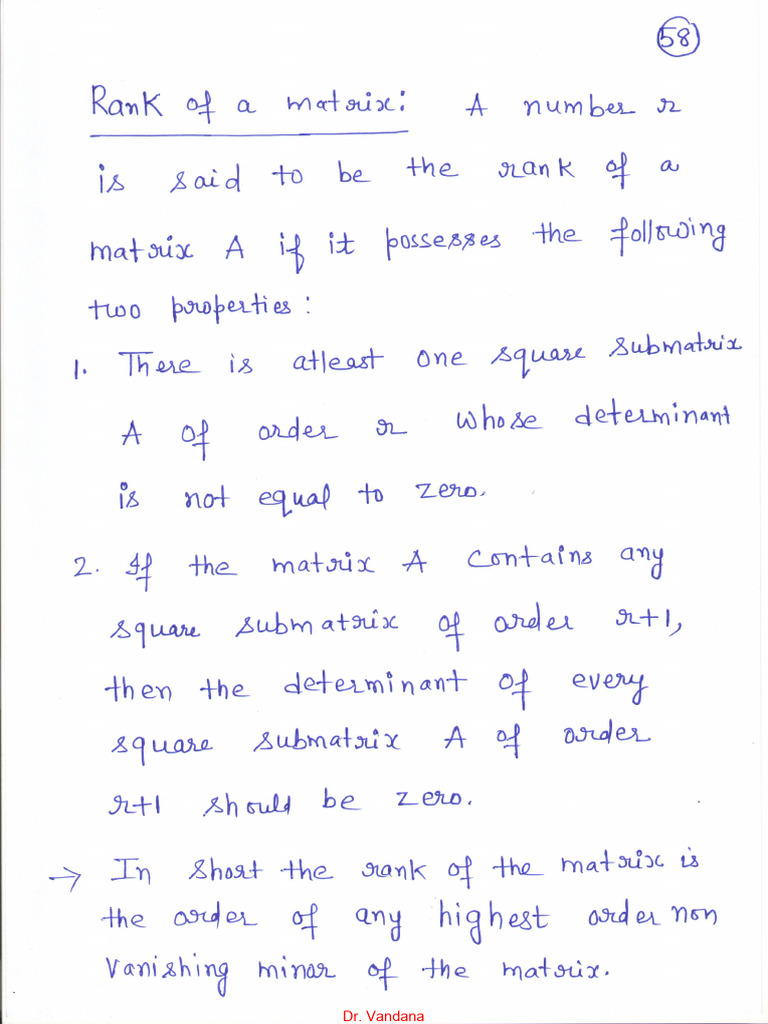 58
Rank of a matrix: A number r
is said to be the rank of a
matrix A if it possesses the following
two properties:
1. There is atleast one square submatrix
A of order r whose determinant
is not equal to zero.
2. If the matrix A contains any
square submatrix of order r+1,
then the determinant of every
square submatrix A of order
r+1 should be zero.
→ In short the rank of the matrix is
the order of any highest order non
vanishing minor of the matrix.
Dr. Vandana